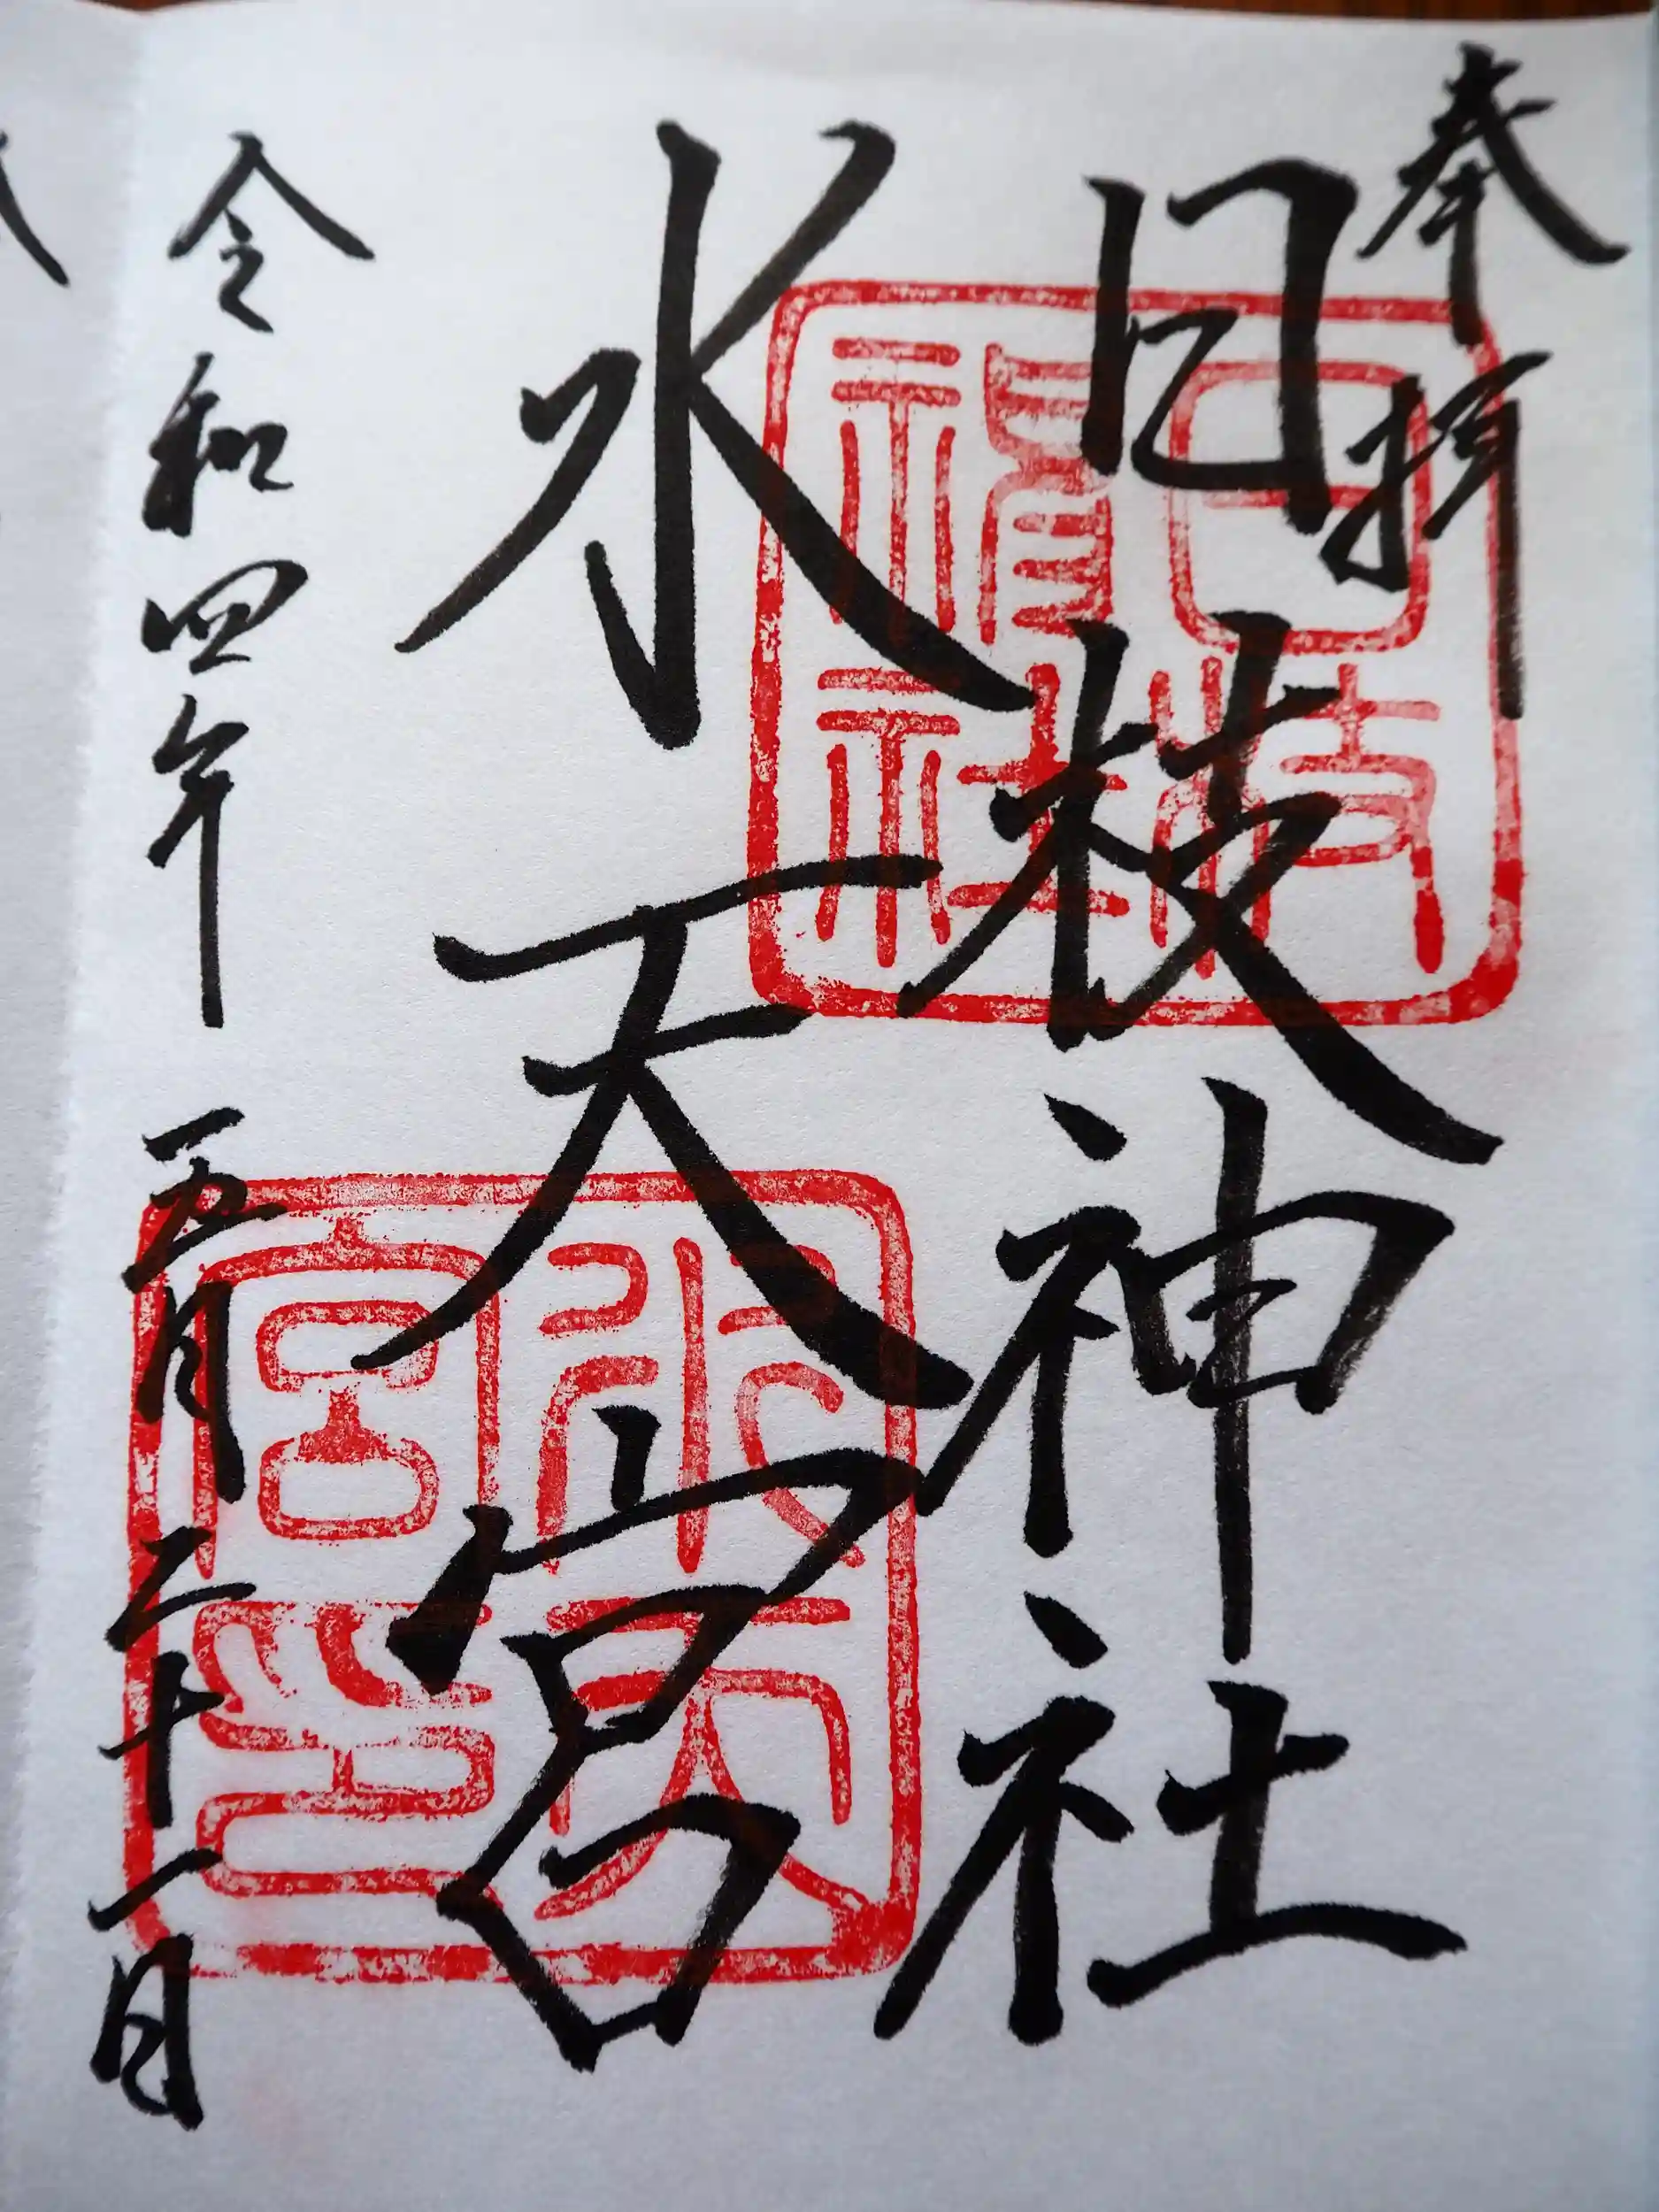 奉拝
日枝神社
日枝神社
水天宮
水天宮印
令和四年五月二十一日